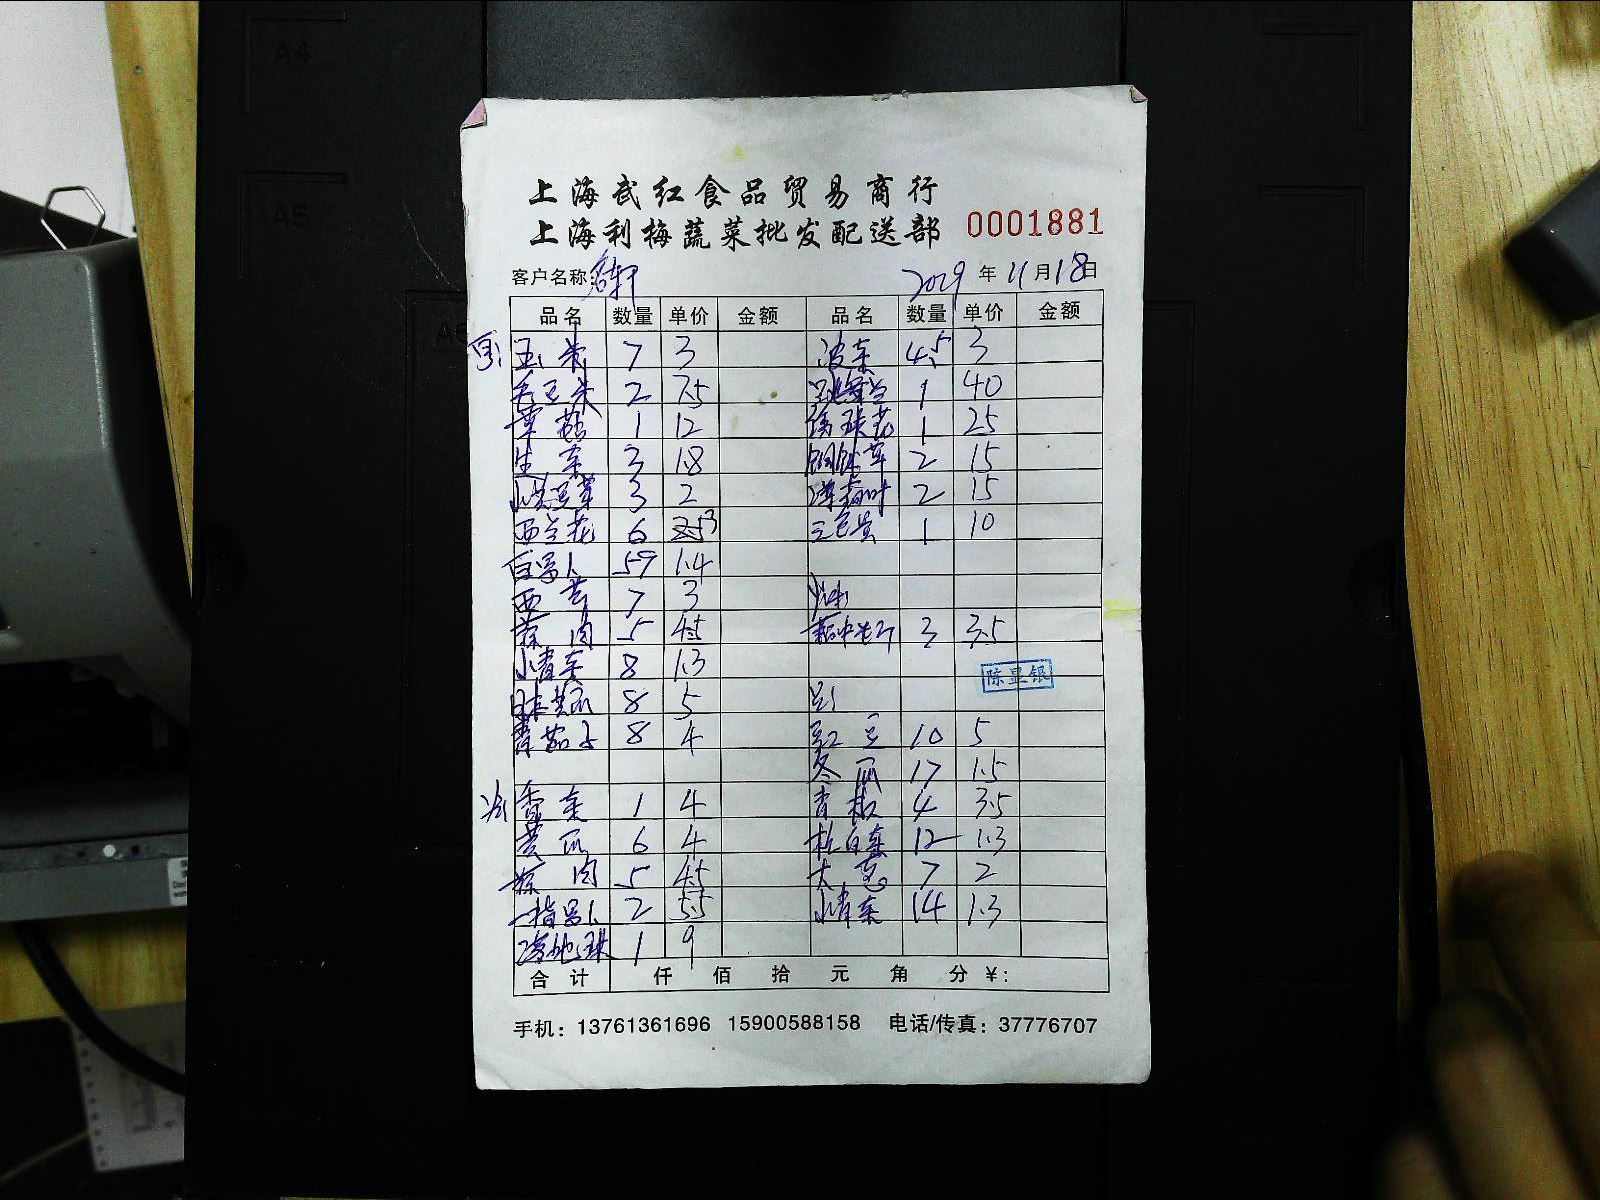 A4
A5
上海武红食品贸易商行
上海利梅蔬菜批发配送部 0001881
客户名称: 名轩 2019 年 11 月 18 日
品名 数量 单价 金额 品名 数量 单价 金额
玉米 7 3 波菜 4.5 3
毛豆米 2 7.5 1 40
草菇 1 12 1 25
生菜 3 1.8 2 15
小黄豆芽 3 2 2 15
西兰花 6 3 三色堇 1 10
59 1.4
西芹 7 3
蒜肉 5 4.5 3 3.5
小青菜 8 1.3
陈显银
日本黄瓜 8 5
青茄子 8 4 豇豆 10 5
冬瓜 17 1.5
香菜 1 4 青椒 4 3.5
黄瓜 6 4 杭白菜 12 1.3
蒜肉 5 4.5 大葱 7 2
2 5.5 小青菜 14 1.3
1 9
合计 仟 佰 拾 元 角 分 ¥:
手机: 13761361696 15900588158 电话/传真: 37776707